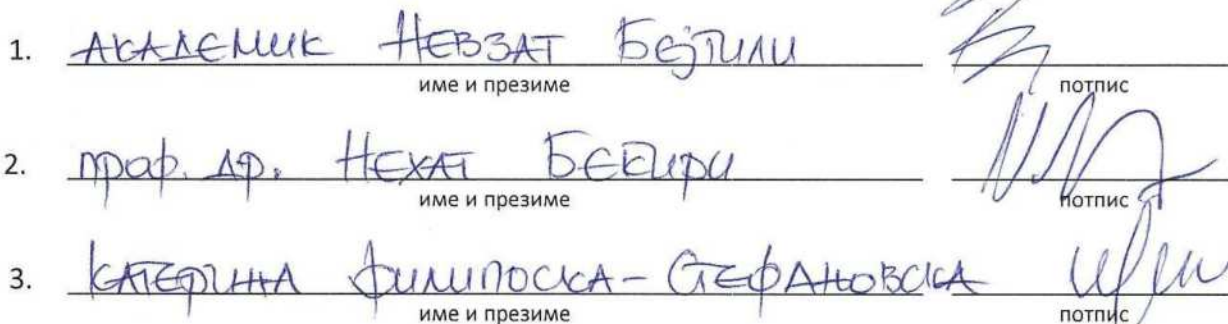 1. АКАДЕМИК НЕВЗАТ БЕЈТУЛИ
име и презиме потпис
2. проф. др. НЕХАТ БЕЌИРИ
име и презиме потпис
3. КАТЕРИНА ФИЛИПОСКА-СТЕФАНОВСКА
име и презиме потпис